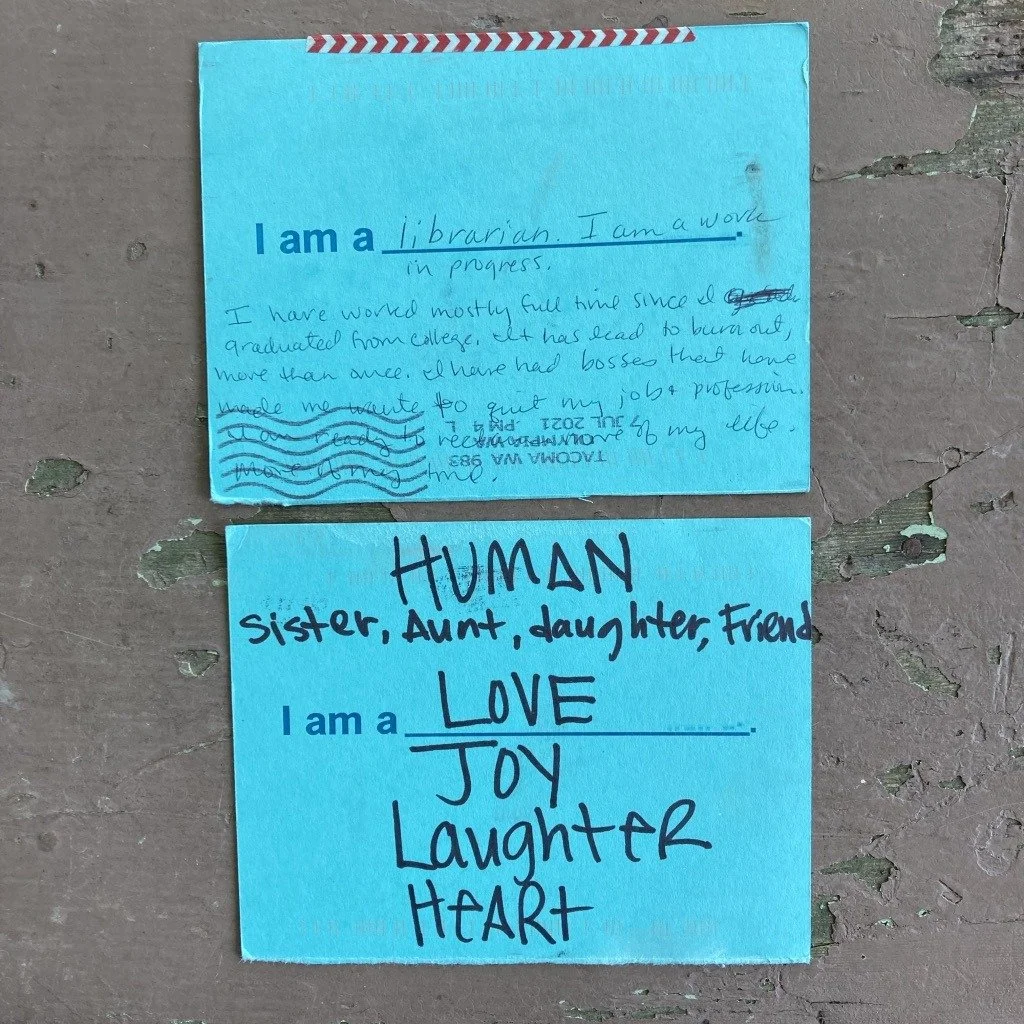 I am a librarian. I am a work.
in progress.
I have worked mostly full time since I
graduated from college. It has lead to burn out,
more than once. I have had bosses that have
made me wante to quit my job + profession.
I am ready to receive more of my life.
more of my time.
TACOMA WA 983
OLYMPIA WA
JUL 2021 PM 4 L
HUMAN
sister, Aunt, daughter, Friend
I am a LOVE.
JOY
LaughteR
HeARt